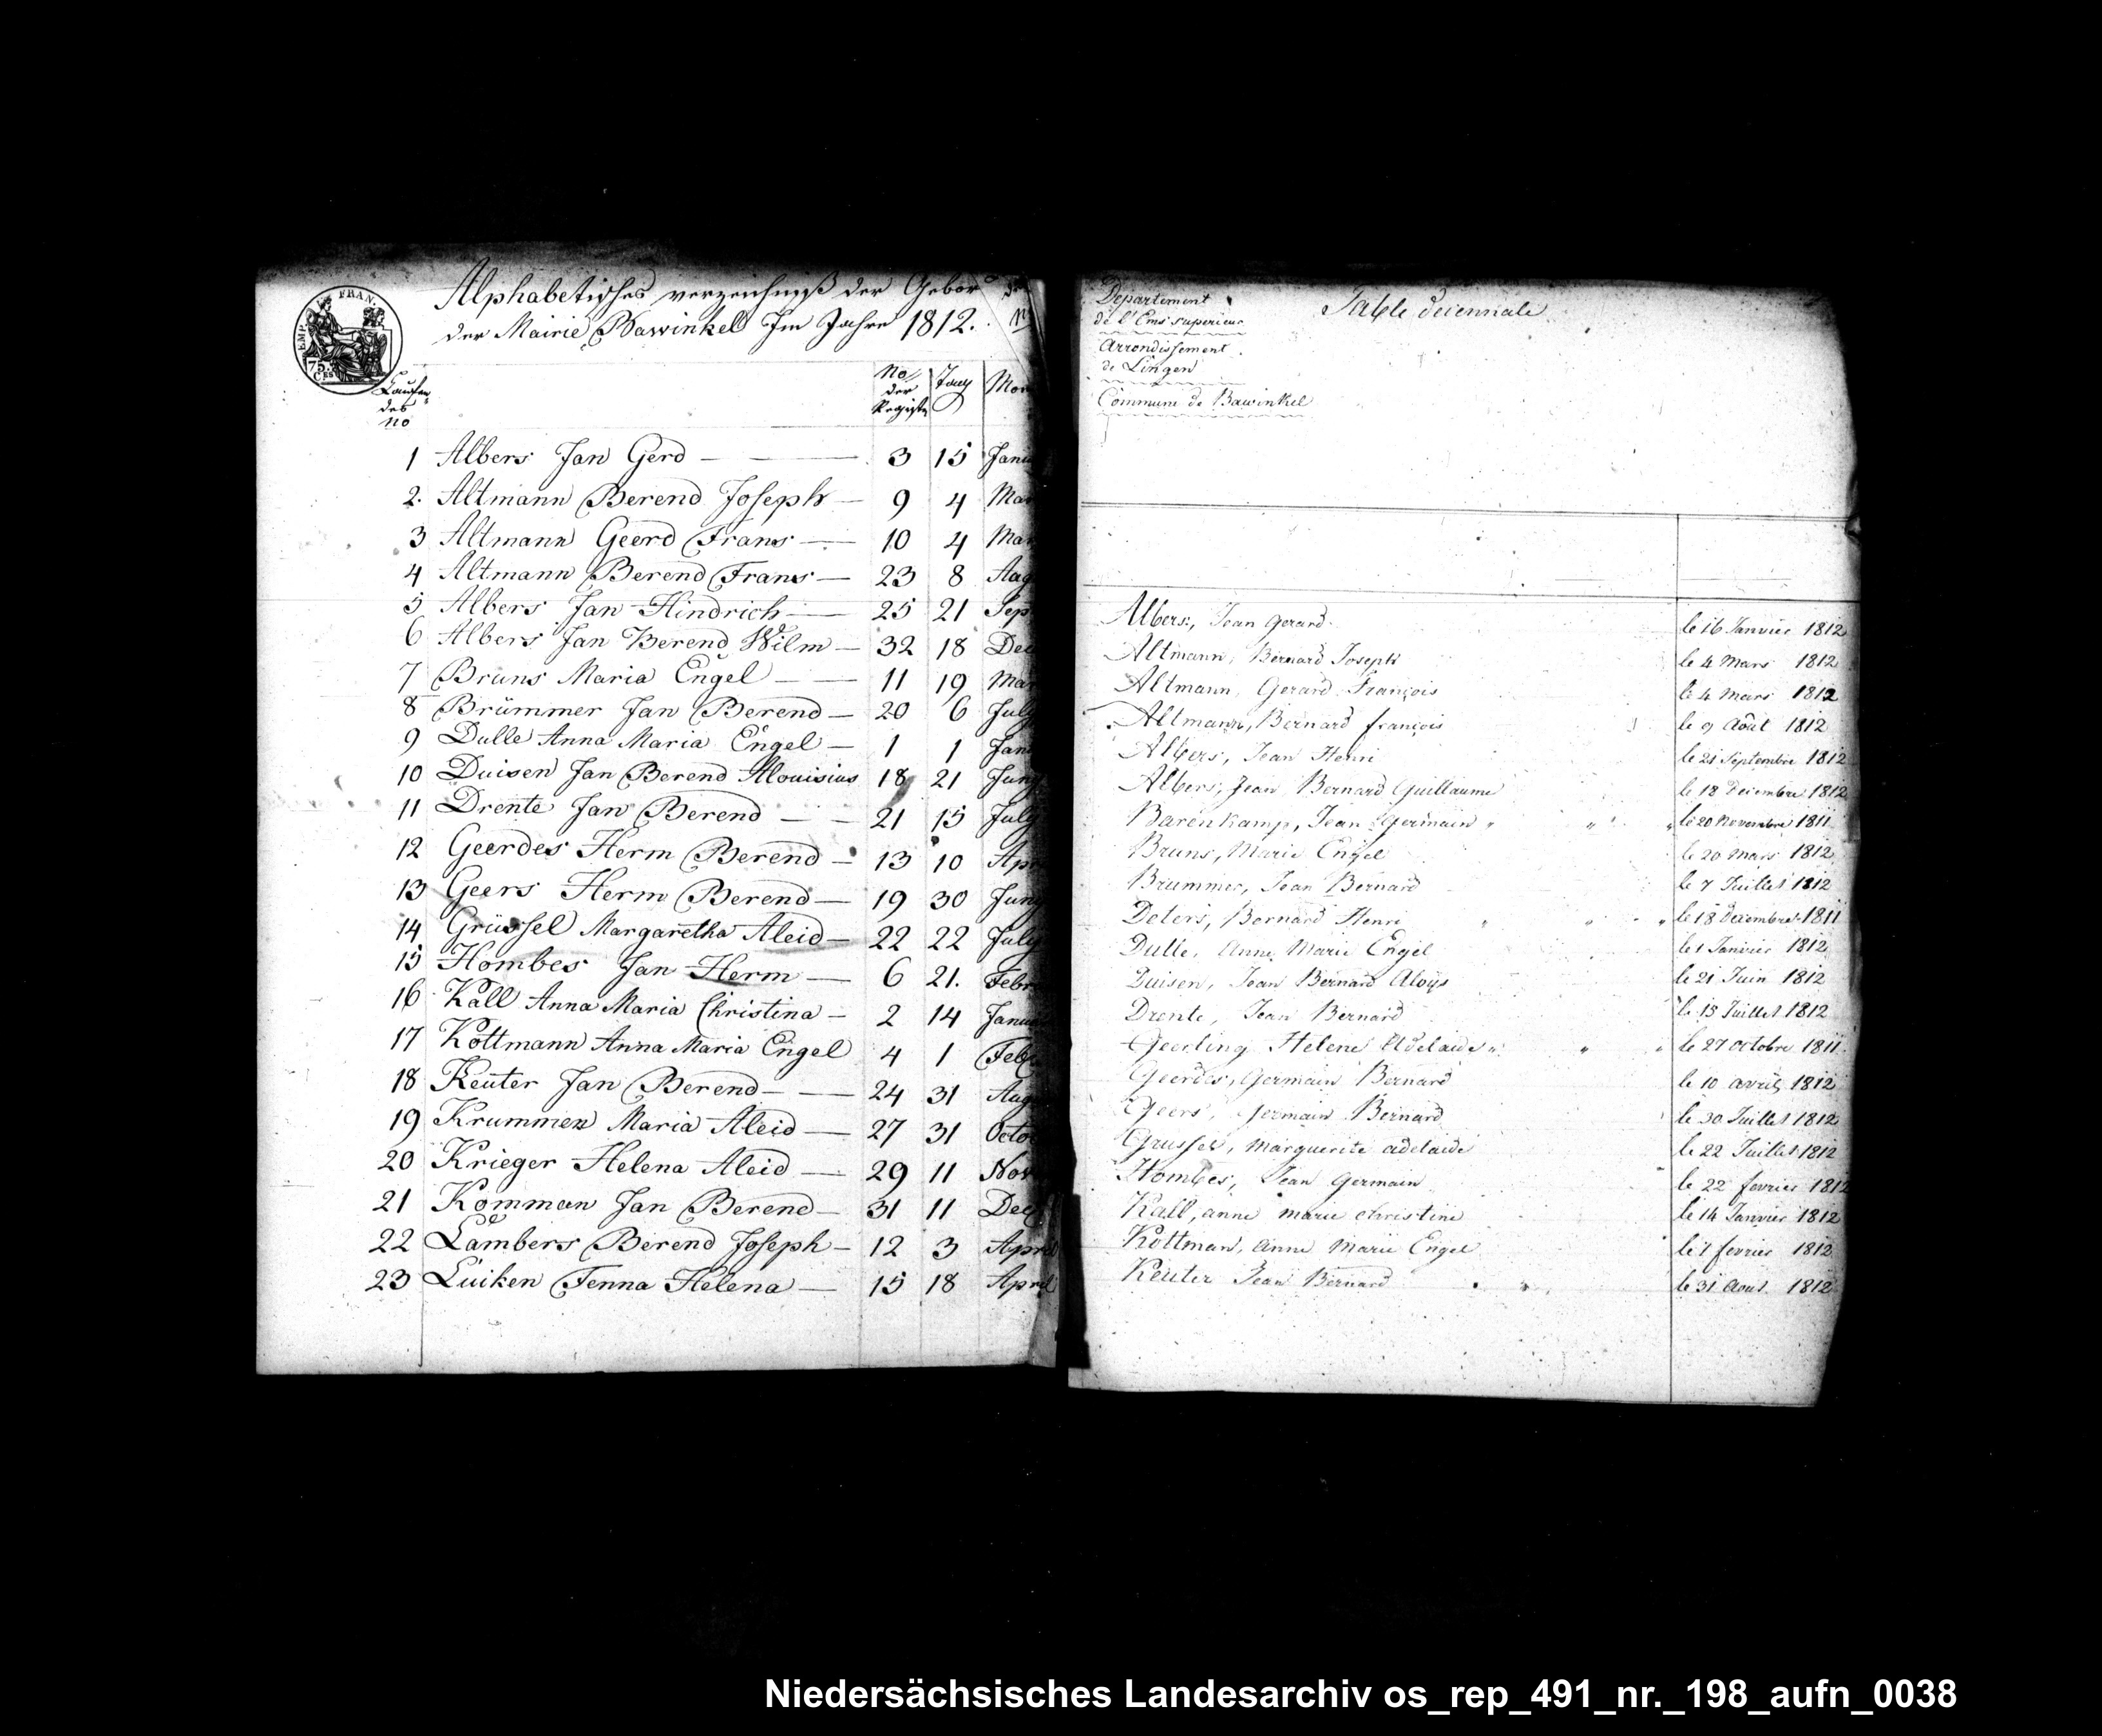 EMP. FRAN.
75. CES
Alphabetisches verzeichniß der Gebor
der Mairie Bawinkel Im Jahre 1812.
Laufen
des
no
No
der
Registr
Tag
Mon
1 Albers Jan Gerd — 3 15 Janu
2. Altmann Berend Joseph — 9 4 Mar
3 Altmann Geerd Frans — 10 4 Mar
4 Altmann Berend Frans — 23 8 Aug
5 Albers Jan Hindrich — 25 21 Sep
6 Albers Jan Berend Wilm — 32 18 Dec
7 Bruns Maria Engel — 11 19 Mar
8 Brümmer Jan Berend — 20 6 July
9 Dulle Anna Maria Engel — 1 1 Jan
10 Duisen Jan Berend Alouisius 18 21 Juny
11 Drente Jan Berend — 21 15 July
12 Geerdes Herm Berend — 13 10 Apr
13 Geers Herm Berend — 19 30 Juny
14 Grüssel Margaretha Aleid — 22 22 July
15 Hombes Jan Herm — 6 21. Febr
16 Kall Anna Maria Christina — 2 14 Janu
17 Kottmann Anna Maria Engel 4 1 Feb
18 Keuter Jan Berend — 24 31 Aug
19 Krummen Maria Aleid — 27 31 Octo
20 Krieger Helena Aleid — 29 11 Nov
21 Komman Jan Berend — 31 11 Dec
22 Lambers Berend Joseph — 12 3 April
23 Luiken Fenna Helena — 15 18 April
Departement
de l'Ems superieur
Arrondissement
de Lingen
Commune de Bawinkel
Table decennale
Albers, Jean Gerard le 16 Janvier 1812
Altmann, Bernard Joseph le 4 Mars 1812
Altmann, Gerard François le 4 Mars 1812
Altmann, Bernard françois le 9 Août 1812
Albers, Jean Henri le 21 Septembre 1812
Albers, Jean Bernard Guillaume le 18 Decembre 1812
Barenkamp, Jean Germain " " " le 20 Novembre 1811
Bruns, Marie Engel le 20 Mars 1812
Brummer, Jean Bernard le 7 Juillet 1812
Deters, Bernard Henri " " " le 18 Decembre 1811
Dulle, Anne Marie Engel le 1 Janvier 1812
Duisen, Jean Bernard Aloys le 21 Juin 1812
Drente, Jean Bernard le 15 Juillet 1812
Geerling Helene Adelaide " " " le 27 octobre 1811
Geerdes, Germain Bernard le 10 avril 1812
Geers, Germain Bernard le 30 Juillet 1812
Grussel, Marguerite adelaide le 22 Juillet 1812
Hombes, Jean Germain le 22 fevrier 1812
Kall, anne marie christine le 14 Janvier 1812
Kottman, Anne Marie Engel le 1 fevrier 1812
Keuter Jean Bernard le 31 Aout 1812
Niedersächsisches Landesarchiv os_rep_491_nr._198_aufn_0038